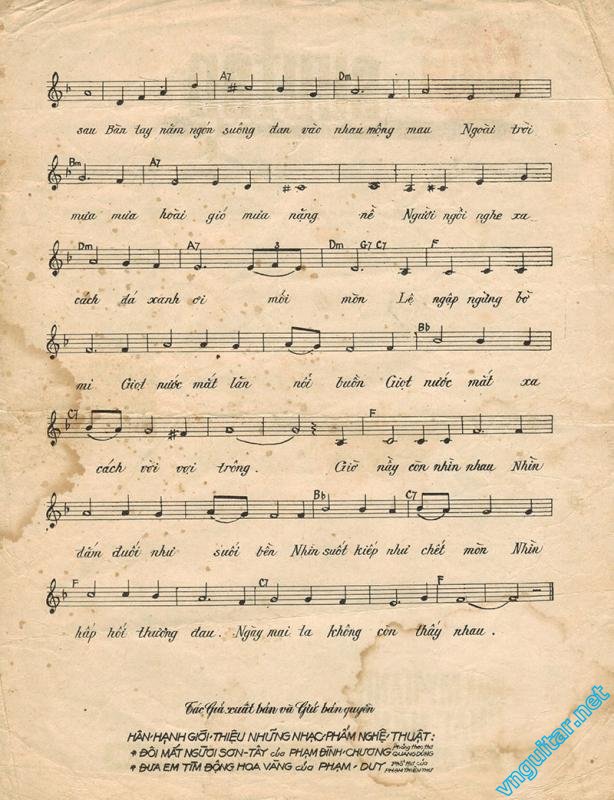 A7 Dm
sau Bàn tay năm ngón suông đan vào nhau mộng mau Ngoài trời
Bm A7
mưa mưa hoài gió mưa nặng nề Người ngồi nghe xa
Dm A7 3 Dm G7 C7 F
cách đá xanh ơi mỏi mòn Lệ ngập ngừng bờ
Bb
mi Giọt nước mắt lăn nỗi buồn Giọt nước mắt xa
C7 F
cách vời vợi trông. Giờ nầy còn nhìn nhau Nhìn
Bb C7
đắm đuối như suối bền Nhìn suốt kiếp như chết mòn Nhìn
F C7 F
hấp hối thương đau. Ngày mai ta không còn thấy nhau.
Tác Giả xuất bản và Giữ bản quyền
HÂN·HẠNH GIỚI·THIỆU NHỮNG NHẠC·PHẨM NGHỆ·THUẬT:
* ĐÔI MẮT NGƯỜI SƠN-TÂY của PHẠM ĐÌNH·CHƯƠNG Phỏng theo thơ QUANG DŨNG
* ĐƯA EM TÌM ĐỘNG HOA VÀNG của PHẠM-DUY Phổ thơ của PHẠM THIÊN THƯ
vnguitar.net